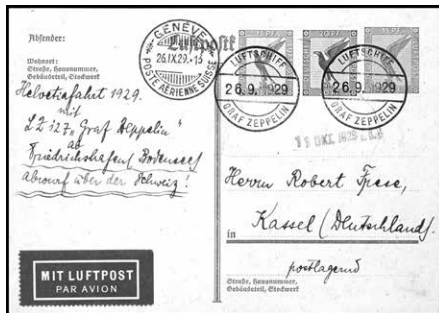 Absender:
Wohnort:
Straße, Hausnummer,
Gebäudeteil, Stockwerk
Helvetiafahrt 1929.
mit
LZ 127 „Graf Zeppelin"
ab
Friedrichshafen/Bodensee/
abwurf über der Schweiz!
MIT LUFTPOST
PAR AVION
GENÈVE
26.IX.29.-16
POSTE AÉRIENNE SUISSE
Luftpostk
15 PF
20 PF
15 PF
LUFTSCHIFF
26.9.1929
GRAF ZEPPELIN
LUFTSCHIFF
26.9.1929
GRAF ZEPPELIN
1929
Herrn Robert
in
Kassel (Deutschland).
postlagernd
Straße, Hausnummer,
Gebäudeteil, Stockwerk